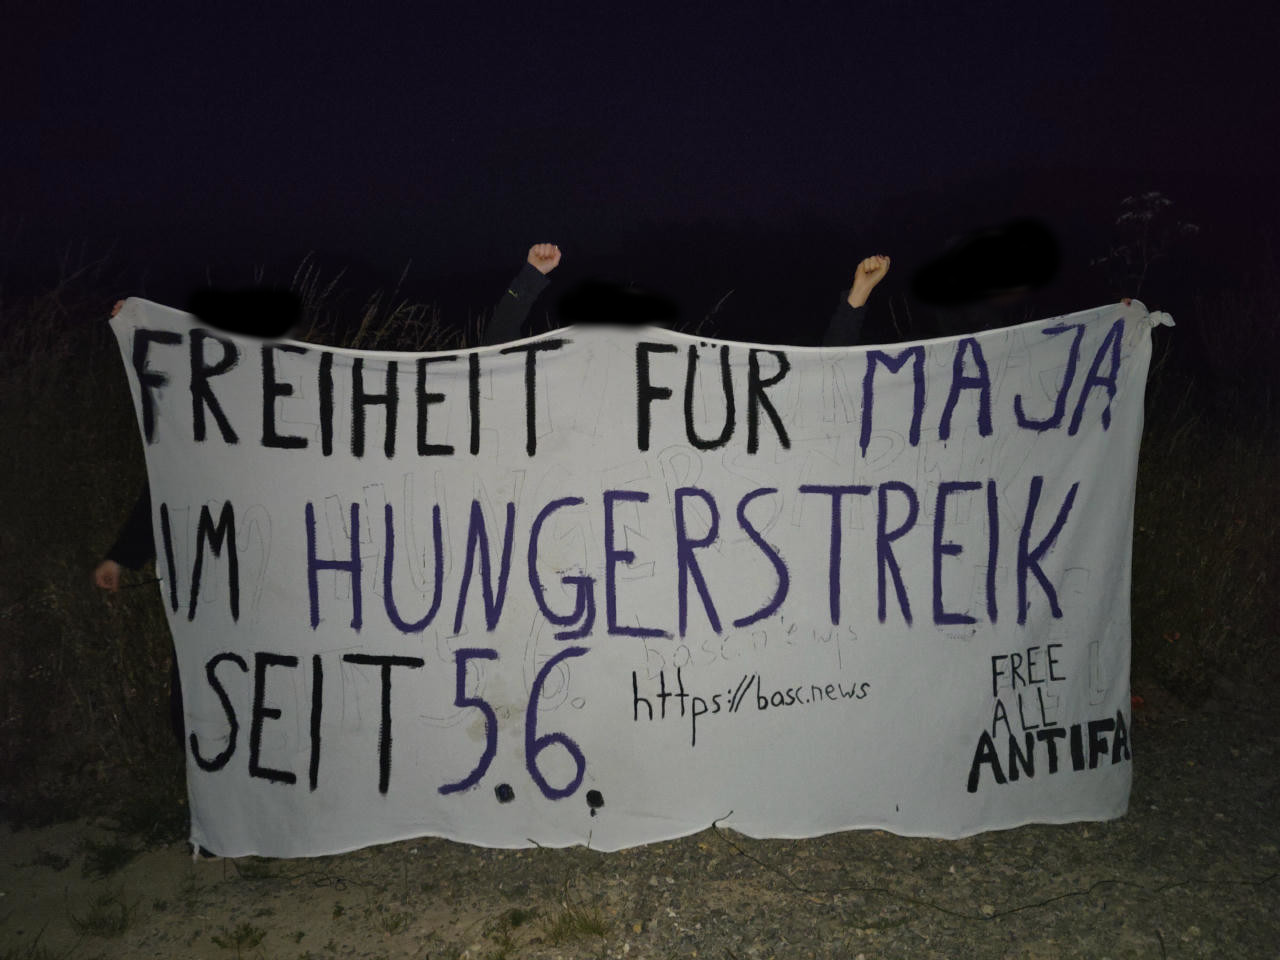 FREIHEIT FÜR MAJA
IM HUNGERSTREIK
SEIT 5.6.
https://basc.news
FREE
ALL
ANTIFA